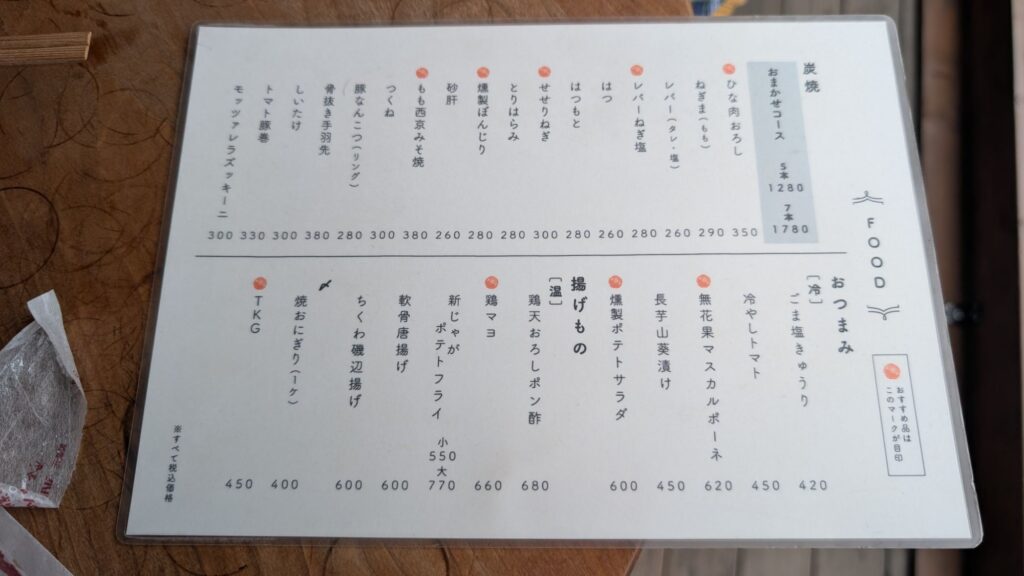 FOOD
おすすめ品は
このマークが目印
炭焼
おまかせコース 5本 1280 7本 1780
ひな肉おろし 350
ねぎま(もも) 290
レバー(タレ・塩) 260
レバーねぎ塩 280
はつ 260
はつもと 280
せせりねぎ 300
とりはらみ 280
燻製ぼんじり 280
砂肝 260
もも西京みそ焼 380
つくね 300
豚なんこつ(リング) 280
骨抜き手羽先 380
しいたけ 300
トマト豚巻 330
モッツァレラズッキーニ 300
おつまみ
[冷]
ごま塩きゅうり 420
冷やしトマト 450
無花果マスカルポーネ 620
長芋山葵漬け 450
燻製ポテトサラダ 600
揚げもの
[温]
鶏天おろしポン酢 680
鶏マヨ 660
新じゃが
ポテトフライ 小 550 大 770
軟骨唐揚げ 600
ちくわ磯辺揚げ 600
〆
焼おにぎり(一ケ) 400
TKG 450
※すべて税込価格